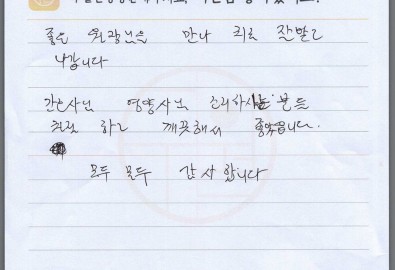 좋은 원장님을 만나 치료 잘받고
나갑니다
간호사님 영양사님 조리하시는 분들
친절 하고 깨끗해서 좋았습니다.
모두 모두 감사합니다